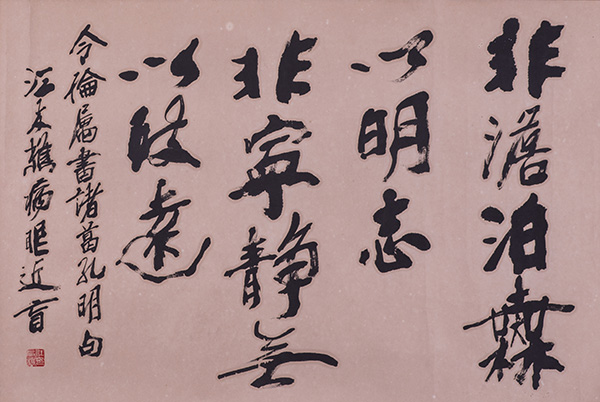 非澹泊無
以明志
非寧靜無
以致遠
令倫屬書諸葛孔明句
江友樵病眼近盲